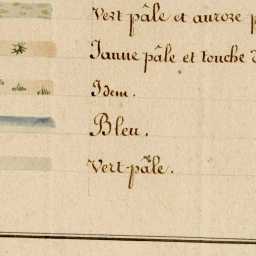 Vert pâle et aurore
Jaune pâle et touche
Idem.
Bleu.
Vert-pâle.